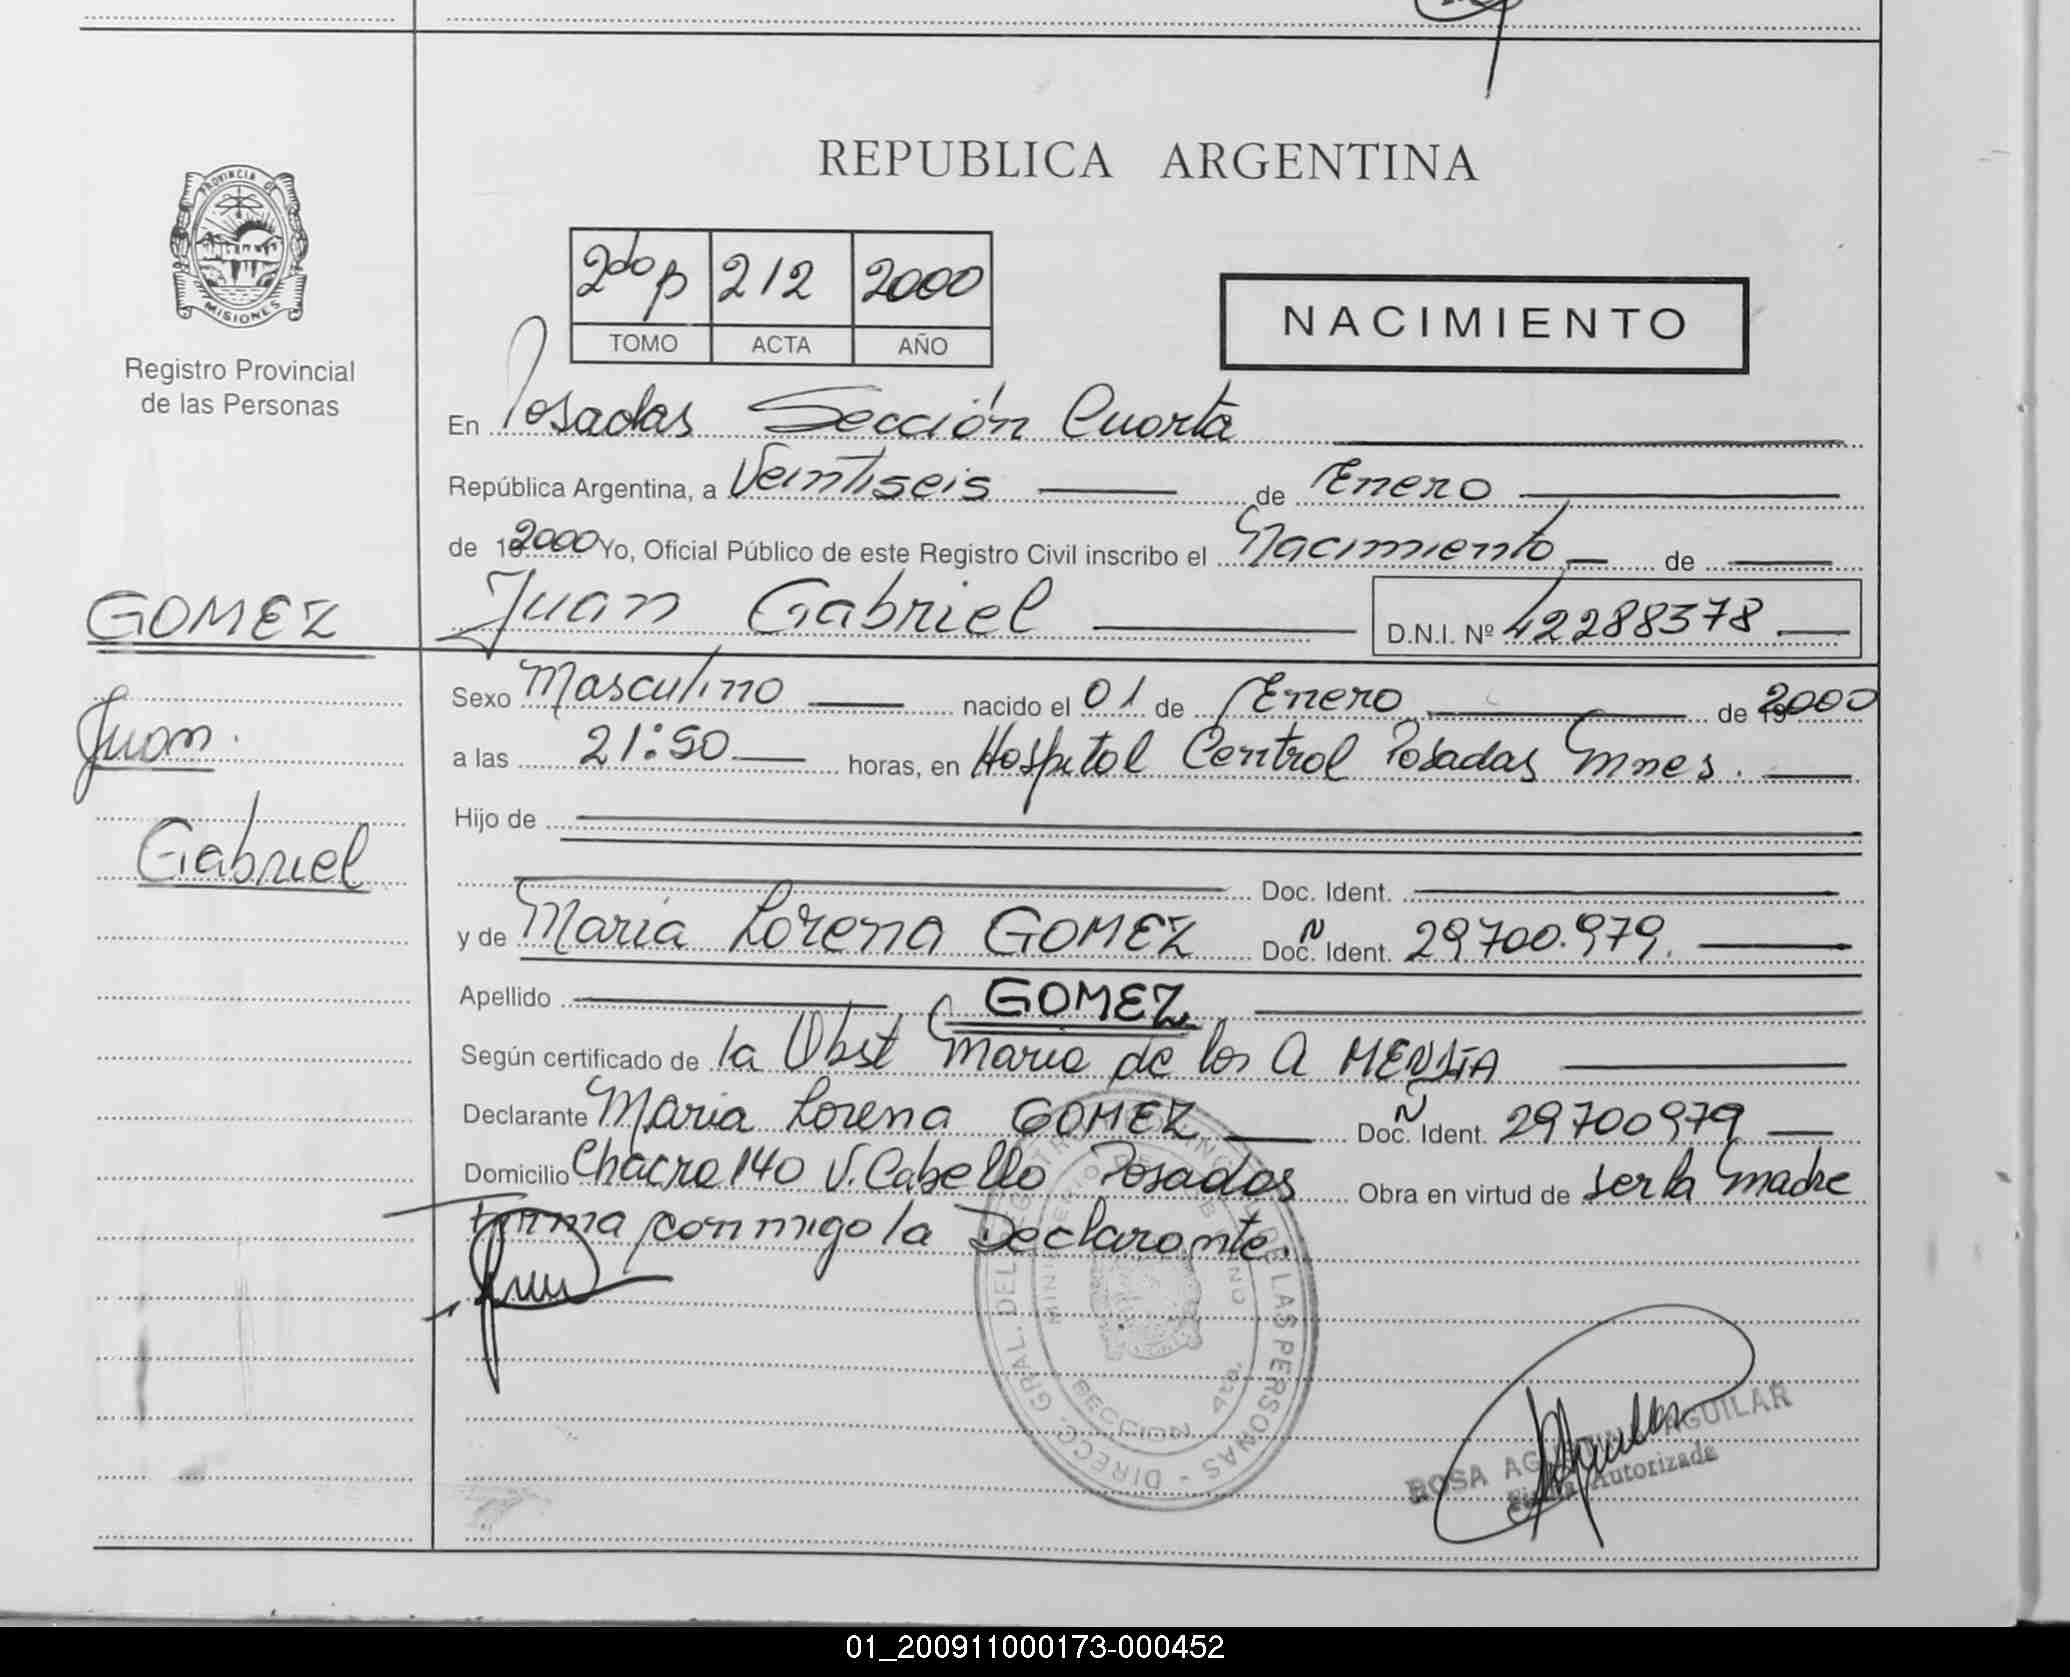 REPUBLICA ARGENTINA
PROVINCIA DE
MISIONES
Registro Provincial
de las Personas
2do p 212 2000
TOMO ACTA AÑO
NACIMIENTO
En Posadas Sección Cuarta
República Argentina, a Veintiseis de Enero
de 19 2000 Yo, Oficial Público de este Registro Civil inscribo el Nacimiento de
GOMEZ
Juan Gabriel D.N.I. Nº 42288378
Sexo Masculino nacido el 01 de Enero de 19 2000
Juan
a las 21:50 horas, en Hospital Central Posadas Mnes.
Hijo de
Gabriel
Doc. Ident.
y de Maria Lorena GOMEZ Doc. N Ident. 29700.979.
Apellido GOMEZ
Según certificado de la Obst Maria de los A
Declarante Maria Lorena GOMEZ Doc. N Ident. 29700979
Domicilio Chacra 140 V. Cabello Posadas Obra en virtud de ser la madre
Firma conmigo la Declarante.
DIRECC. GRAL. DEL REGISTRO PROVINCIAL DE LAS PERSONAS -
MINISTERIO DE GOBIERNO
SECCION 4ta.
ROSA AGUILAR
Firma Autorizada
01_200911000173-000452